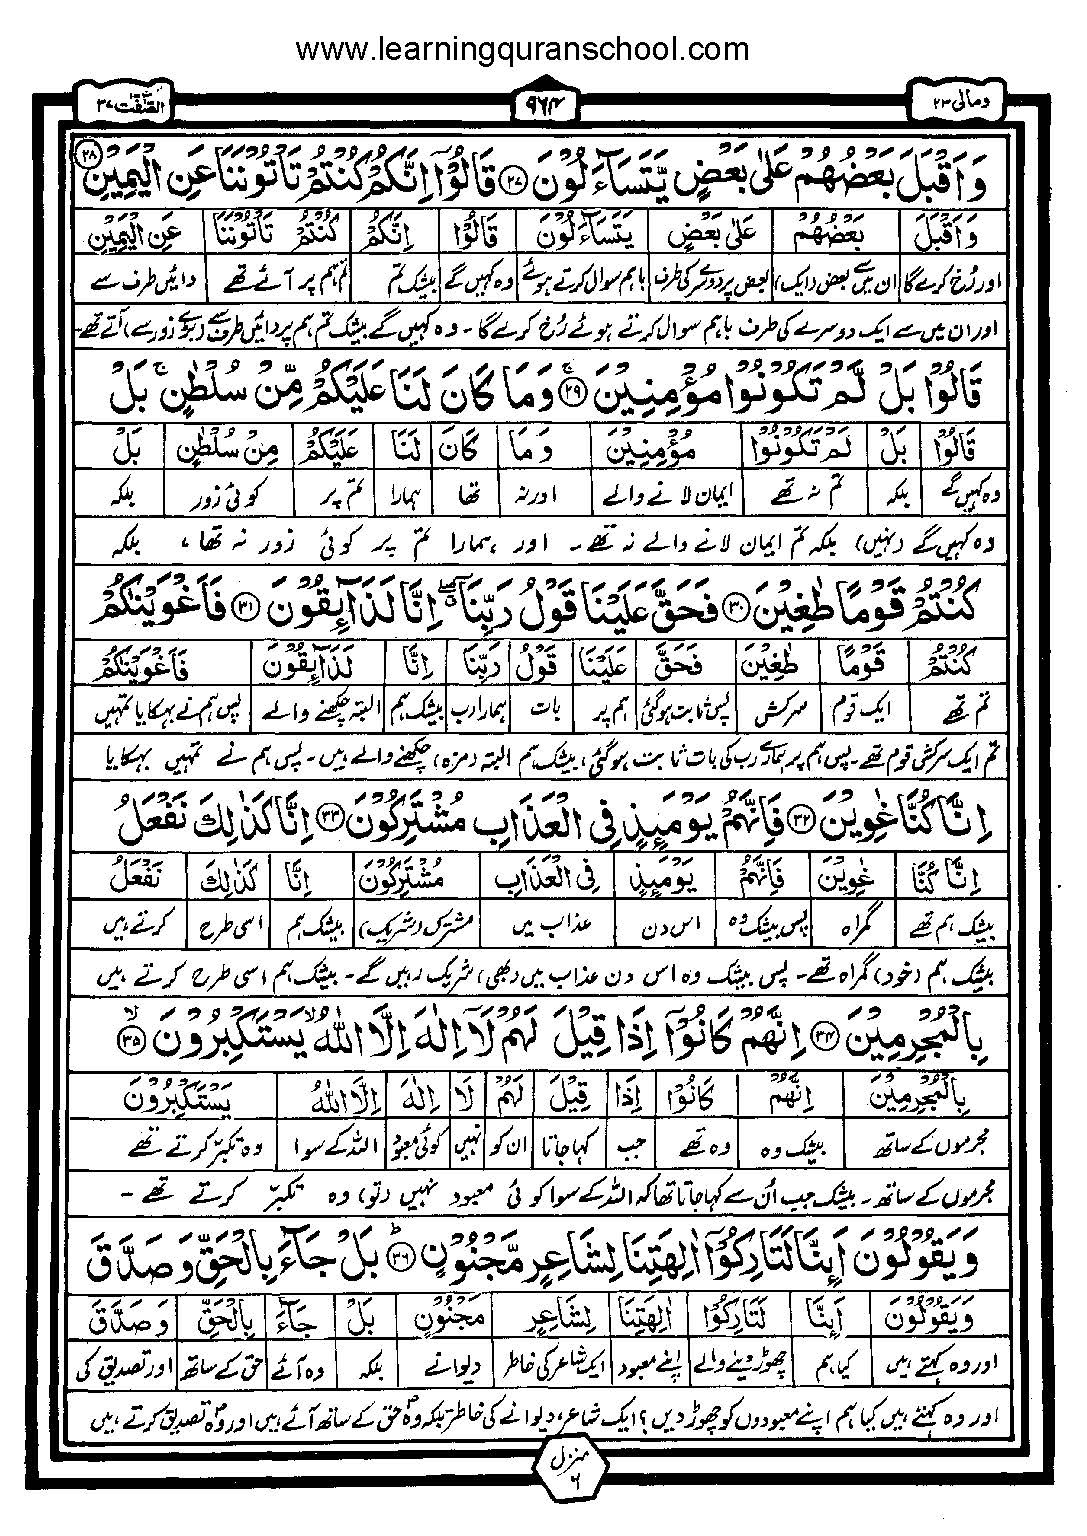 www.learningquranschool.com
الصّٰفّٰت ٣٧
٩٦٤
ومالى ٢٣
وَاَقْبَلَ بَعْضُهُمْ عَلٰى بَعْضٍ يَّتَسَآءَلُوْنَ ۝٢٧ قَالُوْٓا اِنَّكُمْ كُنْتُمْ تَاْتُوْنَنَا عَنِ الْيَمِيْنِ ۝٢٨
وَاَقْبَلَ بَعْضُهُمْ عَلٰى بَعْضٍ يَّتَسَآءَلُوْنَ قَالُوْٓا اِنَّكُمْ كُنْتُمْ تَاْتُوْنَنَا عَنِ الْيَمِيْنِ
اور رُخ کرے گا ان میں سے بعض (ایک) بعض پر دوسرے کی طرف باہم سوال کرتے ہوئے وہ کہیں گے بیشک تم تم ہم پر آئے تھے دائیں طرف سے
اور ان میں سے ایک دوسرے کی طرف باہم سوال کرتے ہوئے رُخ کرے گا۔ وہ کہیں گے بیشک تم ہم پر دائیں طرف سے (بڑے زور سے) آتے تھے۔
قَالُوْا بَلْ لَّمْ تَكُوْنُوْا مُؤْمِنِيْنَ ۝٢٩ وَمَا كَانَ لَنَا عَلَيْكُمْ مِّنْ سُلْطٰنٍ ۚ بَلْ
قَالُوْا بَلْ لَمْ تَكُوْنُوْا مُؤْمِنِيْنَ وَمَا كَانَ لَنَا عَلَيْكُمْ مِنْ سُلْطٰنٍ بَلْ
وہ کہیں گے بلکہ تم نہ تھے ایمان لانے والے اور نہ تھا ہمارا تم پر کوئی زور بلکہ
وہ کہیں گے (نہیں) بلکہ تم ایمان لانے والے نہ تھے۔ اور ہمارا تم پر کوئی زور نہ تھا، بلکہ
كُنْتُمْ قَوْمًا طٰغِيْنَ ۝٣٠ فَحَقَّ عَلَيْنَا قَوْلُ رَبِّنَآ ۖ اِنَّا لَذَآئِقُوْنَ ۝٣١ فَاَغْوَيْنٰكُمْ
كُنْتُمْ قَوْمًا طٰغِيْنَ فَحَقَّ عَلَيْنَا قَوْلُ رَبِّنَا اِنَّا لَذَآئِقُوْنَ فَاَغْوَيْنٰكُمْ
تم تھے ایک قوم سرکش پس ثابت ہوگئی ہم پر بات ہمارا رب بیشک ہم البتہ چکھنے والے پس ہم نے بہکایا تمہیں
تم ایک سرکش قوم تھے۔ پس ہم پر ہمارے رب کی بات ثابت ہوگئی، بیشک ہم البتہ (مزہ) چکھنے والے ہیں۔ پس ہم نے تمہیں بہکایا
اِنَّا كُنَّا غٰوِيْنَ ۝٣٢ فَاِنَّهُمْ يَوْمَئِذٍ فِى الْعَذَابِ مُشْتَرِكُوْنَ ۝٣٣ اِنَّا كَذٰلِكَ نَفْعَلُ
اِنَّا كُنَّا غٰوِيْنَ فَاِنَّهُمْ يَوْمَئِذٍ فِى الْعَذَابِ مُشْتَرِكُوْنَ اِنَّا كَذٰلِكَ نَفْعَلُ
بیشک ہم تھے گمراہ پس بیشک وہ اس دن عذاب میں مشترک (شریک) بیشک ہم اسی طرح کرتے ہیں
بیشک ہم (خود) گمراہ تھے۔ پس بیشک وہ اس دن عذاب میں (بھی) شریک رہیں گے۔ بیشک ہم اسی طرح کرتے ہیں
بِالْمُجْرِمِيْنَ ۝٣٤ اِنَّهُمْ كَانُوْٓا اِذَا قِيْلَ لَهُمْ لَآ اِلٰهَ اِلَّا اللّٰهُ ۙ يَسْتَكْبِرُوْنَ ۝٣٥
بِالْمُجْرِمِيْنَ اِنَّهُمْ كَانُوْٓا اِذَا قِيْلَ لَهُمْ لَآ اِلٰهَ اِلَّا اللّٰهُ يَسْتَكْبِرُوْنَ
مجرموں کے ساتھ بیشک وہ وہ تھے جب کہا جاتا ان کو نہیں کوئی معبود اللہ کے سوا وہ تکبر کرتے تھے
مجرموں کے ساتھ۔ بیشک جب اُن سے کہا جاتا تھا کہ اللہ کے سوا کوئی معبود نہیں (تو) وہ تکبرّ کرتے تھے۔
وَيَقُوْلُوْنَ اَئِنَّا لَتَارِكُوْٓا اٰلِهَتِنَا لِشَاعِرٍ مَّجْنُوْنٍ ۝٣٦ بَلْ جَآءَ بِالْحَقِّ وَصَدَّقَ
وَيَقُوْلُوْنَ اَئِنَّا لَتَارِكُوْٓا اٰلِهَتِنَا لِشَاعِرٍ مَجْنُوْنٍ بَلْ جَآءَ بِالْحَقِّ وَصَدَّقَ
اور وہ کہتے ہیں کیا ہم چھوڑ دینے والے اپنے معبود ایک شاعر کی خاطر دیوانے بلکہ وہ آئے حق کے ساتھ اور تصدیق کی
اور وہ کہتے ہیں کیا ہم اپنے معبودوں کو چھوڑ دیں؟ ایک شاعر، دیوانے کی خاطر بلکہ وہؐ حق کے ساتھ آئے ہیں اور وہؐ تصدیق کرتے ہیں
منزل ٦